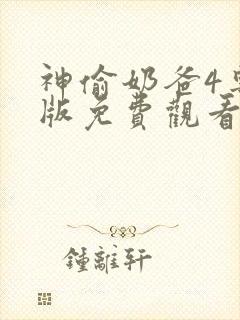 神偷奶爸4
版免費觀看
鍾離軒